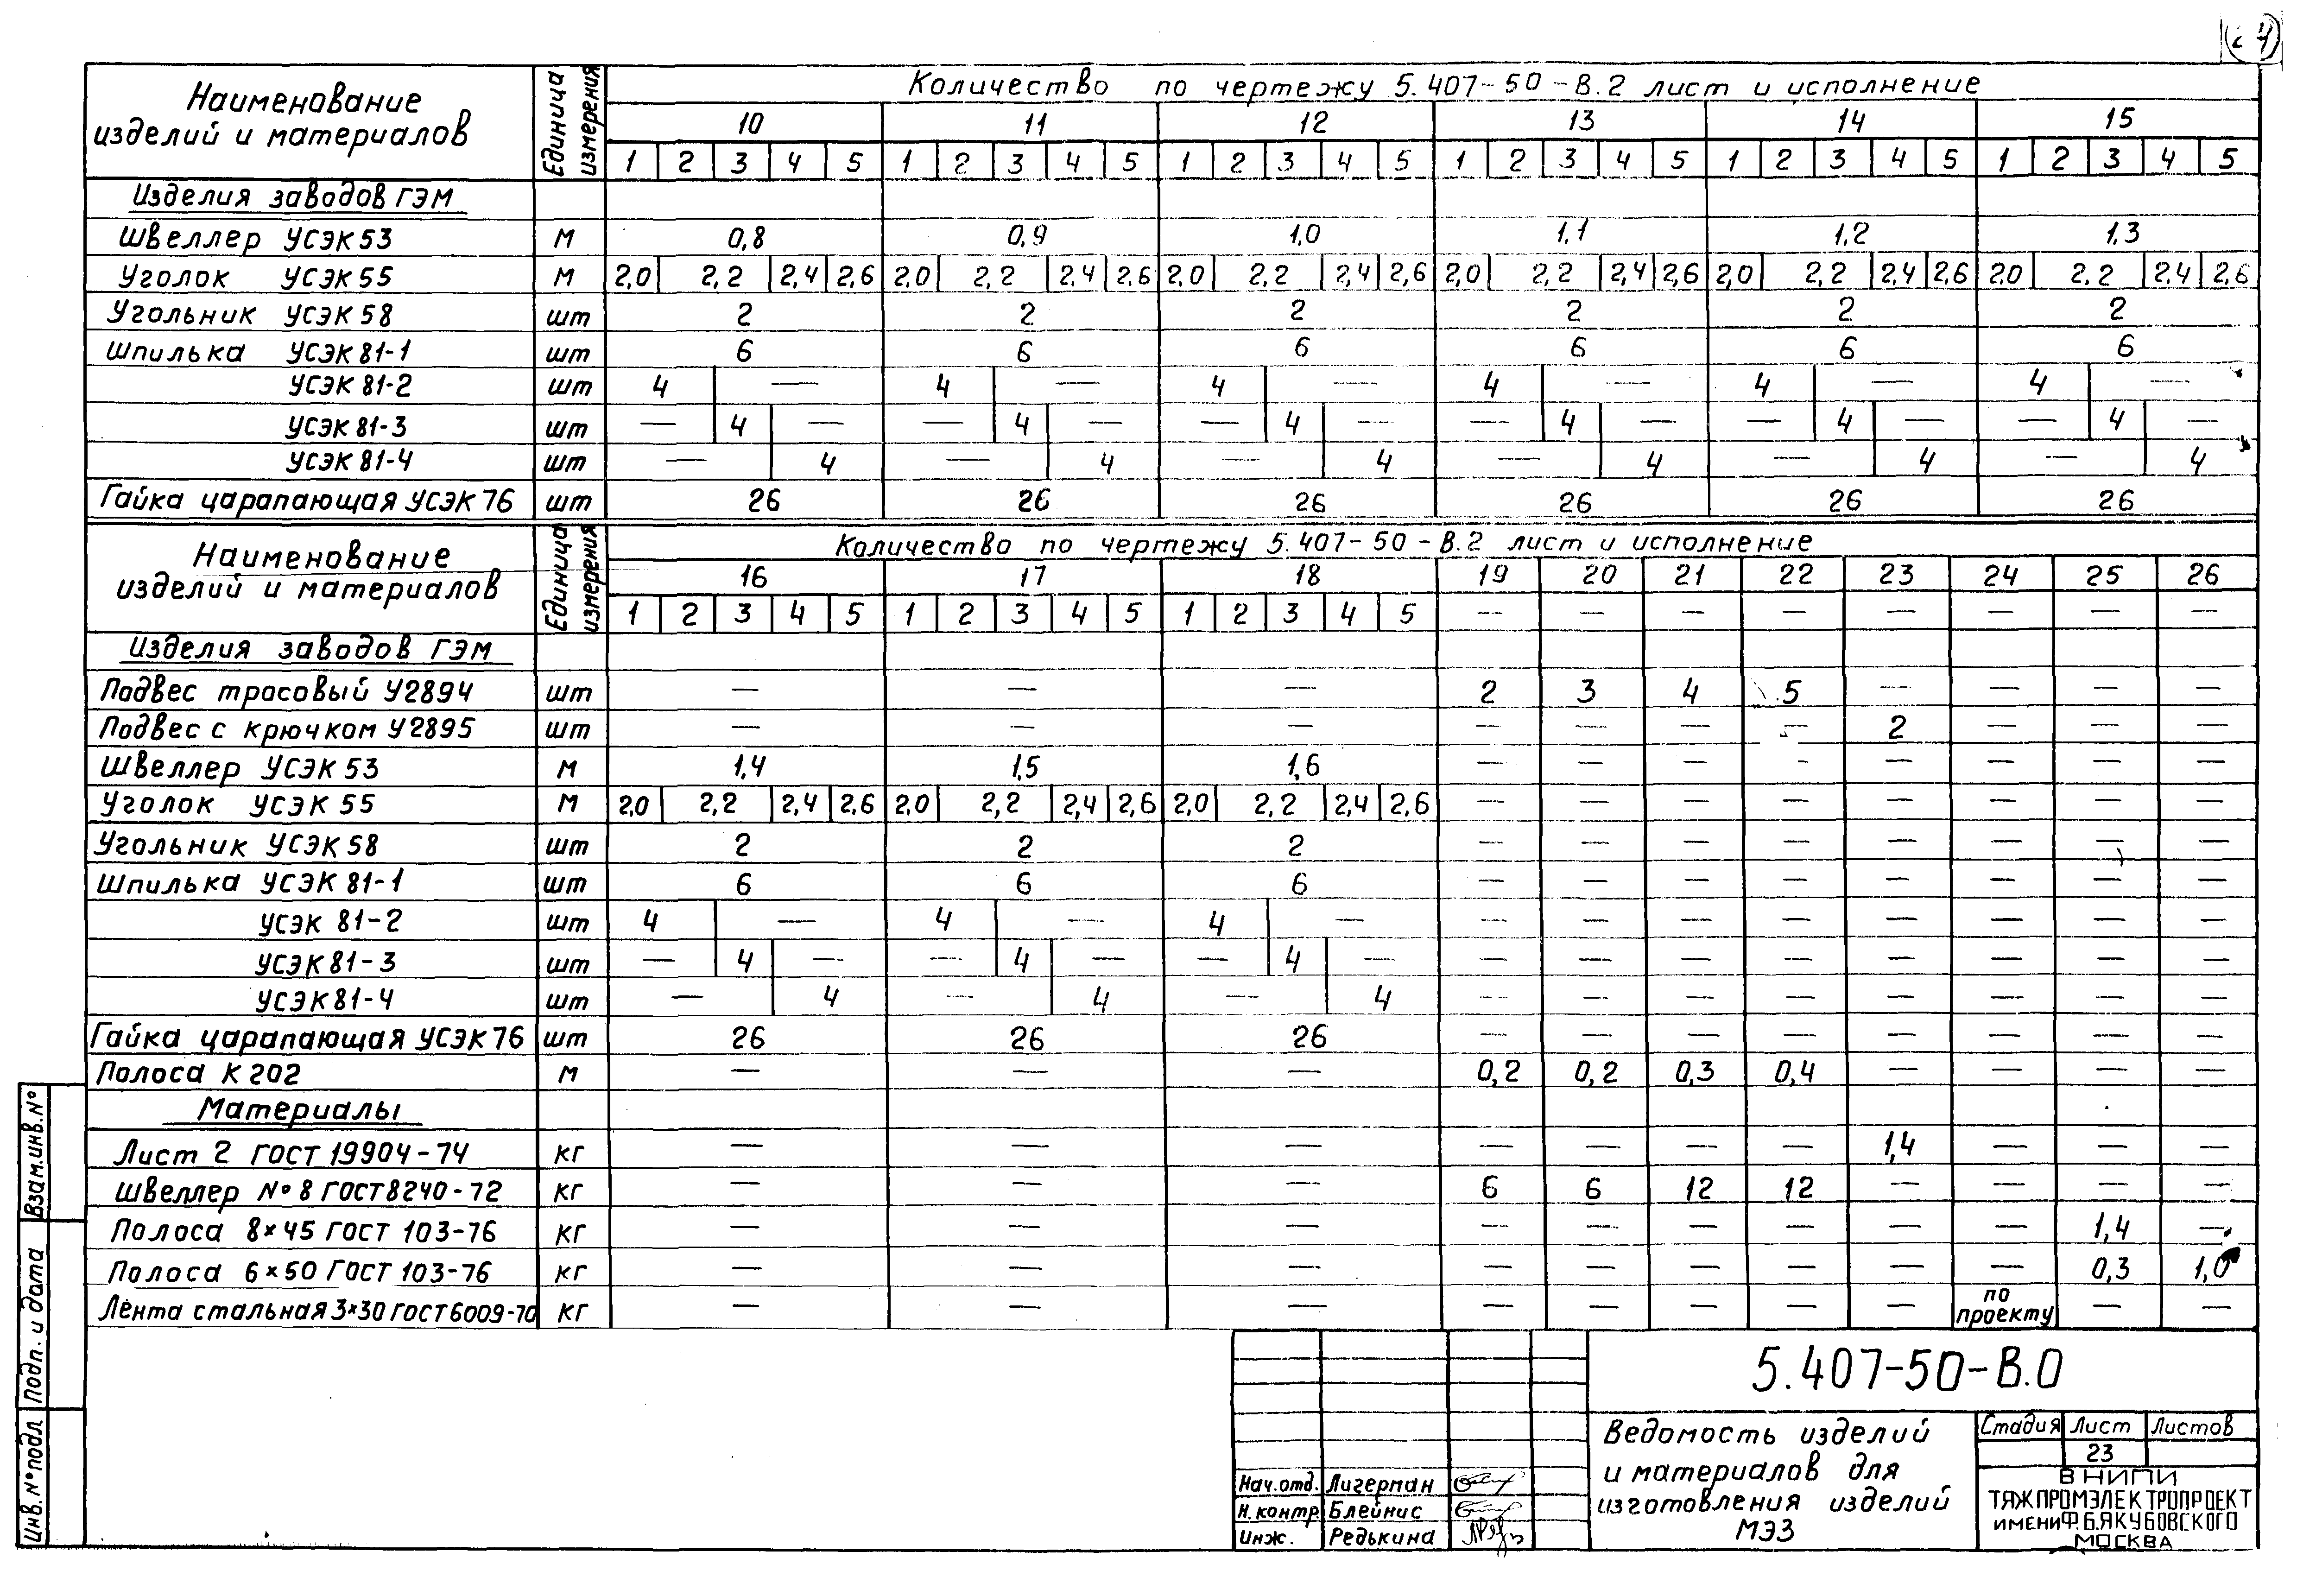 24
Наименование изделий и материалов
Единица измерения
Количество по чертежу 5.407-50-В.2 лист и исполнение
10 11 12 13 14 15
1 2 3 4 5 1 2 3 4 5 1 2 3 4 5 1 2 3 4 5 1 2 3 4 5 1 2 3 4 5
Изделия заводов ГЭМ
Швеллер УСЭК 53 м 0,8 0,9 1,0 1,1 1,2 1,3
Уголок УСЭК 55 м 2,0 2,2 2,4 2,6 2,0 2,2 2,4 2,6 2,0 2,2 2,4 2,6 2,0 2,2 2,4 2,6 2,0 2,2 2,4 2,6 2,0 2,2 2,4 2,6
Угольник УСЭК 58 шт 2 2 2 2 2 2
Шпилька УСЭК 81-1 шт 6 6 6 6 6 6
УСЭК 81-2 шт 4 — 4 — 4 — 4 — 4 — 4 —
УСЭК 81-3 шт — 4 — — 4 — — 4 — — 4 — — 4 — — 4 —
УСЭК 81-4 шт — 4 — 4 — 4 — 4 — 4 — 4
Гайка царапающая УСЭК 76 шт 26 26 26 26 26 26
Наименование изделий и материалов
Единица измерения
Количество по чертежу 5.407-50-В.2 лист и исполнение
16 17 18 19 20 21 22 23 24 25 26
1 2 3 4 5 1 2 3 4 5 1 2 3 4 5 — — — — — — — —
Изделия заводов ГЭМ
Подвес тросовый У2894 шт — — — 2 3 4 5 — — — —
Подвес с крючком У2895 шт — — — — — — — 2 — — —
Швеллер УСЭК 53 м 1,4 1,5 1,6 — — — — — — — —
Уголок УСЭК 55 м 2,0 2,2 2,4 2,6 2,0 2,2 2,4 2,6 2,0 2,2 2,4 2,6 — — — — — — — —
Угольник УСЭК 58 шт 2 2 2 — — — — — — — —
Шпилька УСЭК 81-1 шт 6 6 6 — — — — — — — —
УСЭК 81-2 шт 4 — 4 — 4 — — — — — — — — —
УСЭК 81-3 шт — 4 — — 4 — — 4 — — — — — — — — —
УСЭК 81-4 шт — 4 — 4 — 4 — — — — — — — —
Гайка царапающая УСЭК 76 шт 26 26 26 — — — — — — — —
Полоса К 202 м — — — 0,2 0,2 0,3 0,4 — — — —
Материалы
Лист 2 ГОСТ 19904-74 кг — — — — — — — 1,4 — — —
Швеллер №8 ГОСТ 8240-72 кг — — — 6 6 12 12 — — — —
Полоса 8×45 ГОСТ 103-76 кг — — — — — — — — — 1,4 —
Полоса 6×50 ГОСТ 103-76 кг — — — — — — — — — 0,3 1,0
Лента стальная 3×30 ГОСТ 6009-70 кг — — — — — — — — по проекту — —
Взам.инв.№
Подп. и дата
Инв.№подл
5.407-50-В.0
Ведомость изделий
и материалов для
изготовления изделий
МЭЗ
Стадия Лист Листов
23
ВНИПИ
ТЯЖПРОМЭЛЕКТРОПРОЕКТ
ИМЕНИ Ф.Б.ЯКУБОВСКОГО
МОСКВА
Нач.отд. Лигерман
Н.контр Блейнис
Инж. Редькина